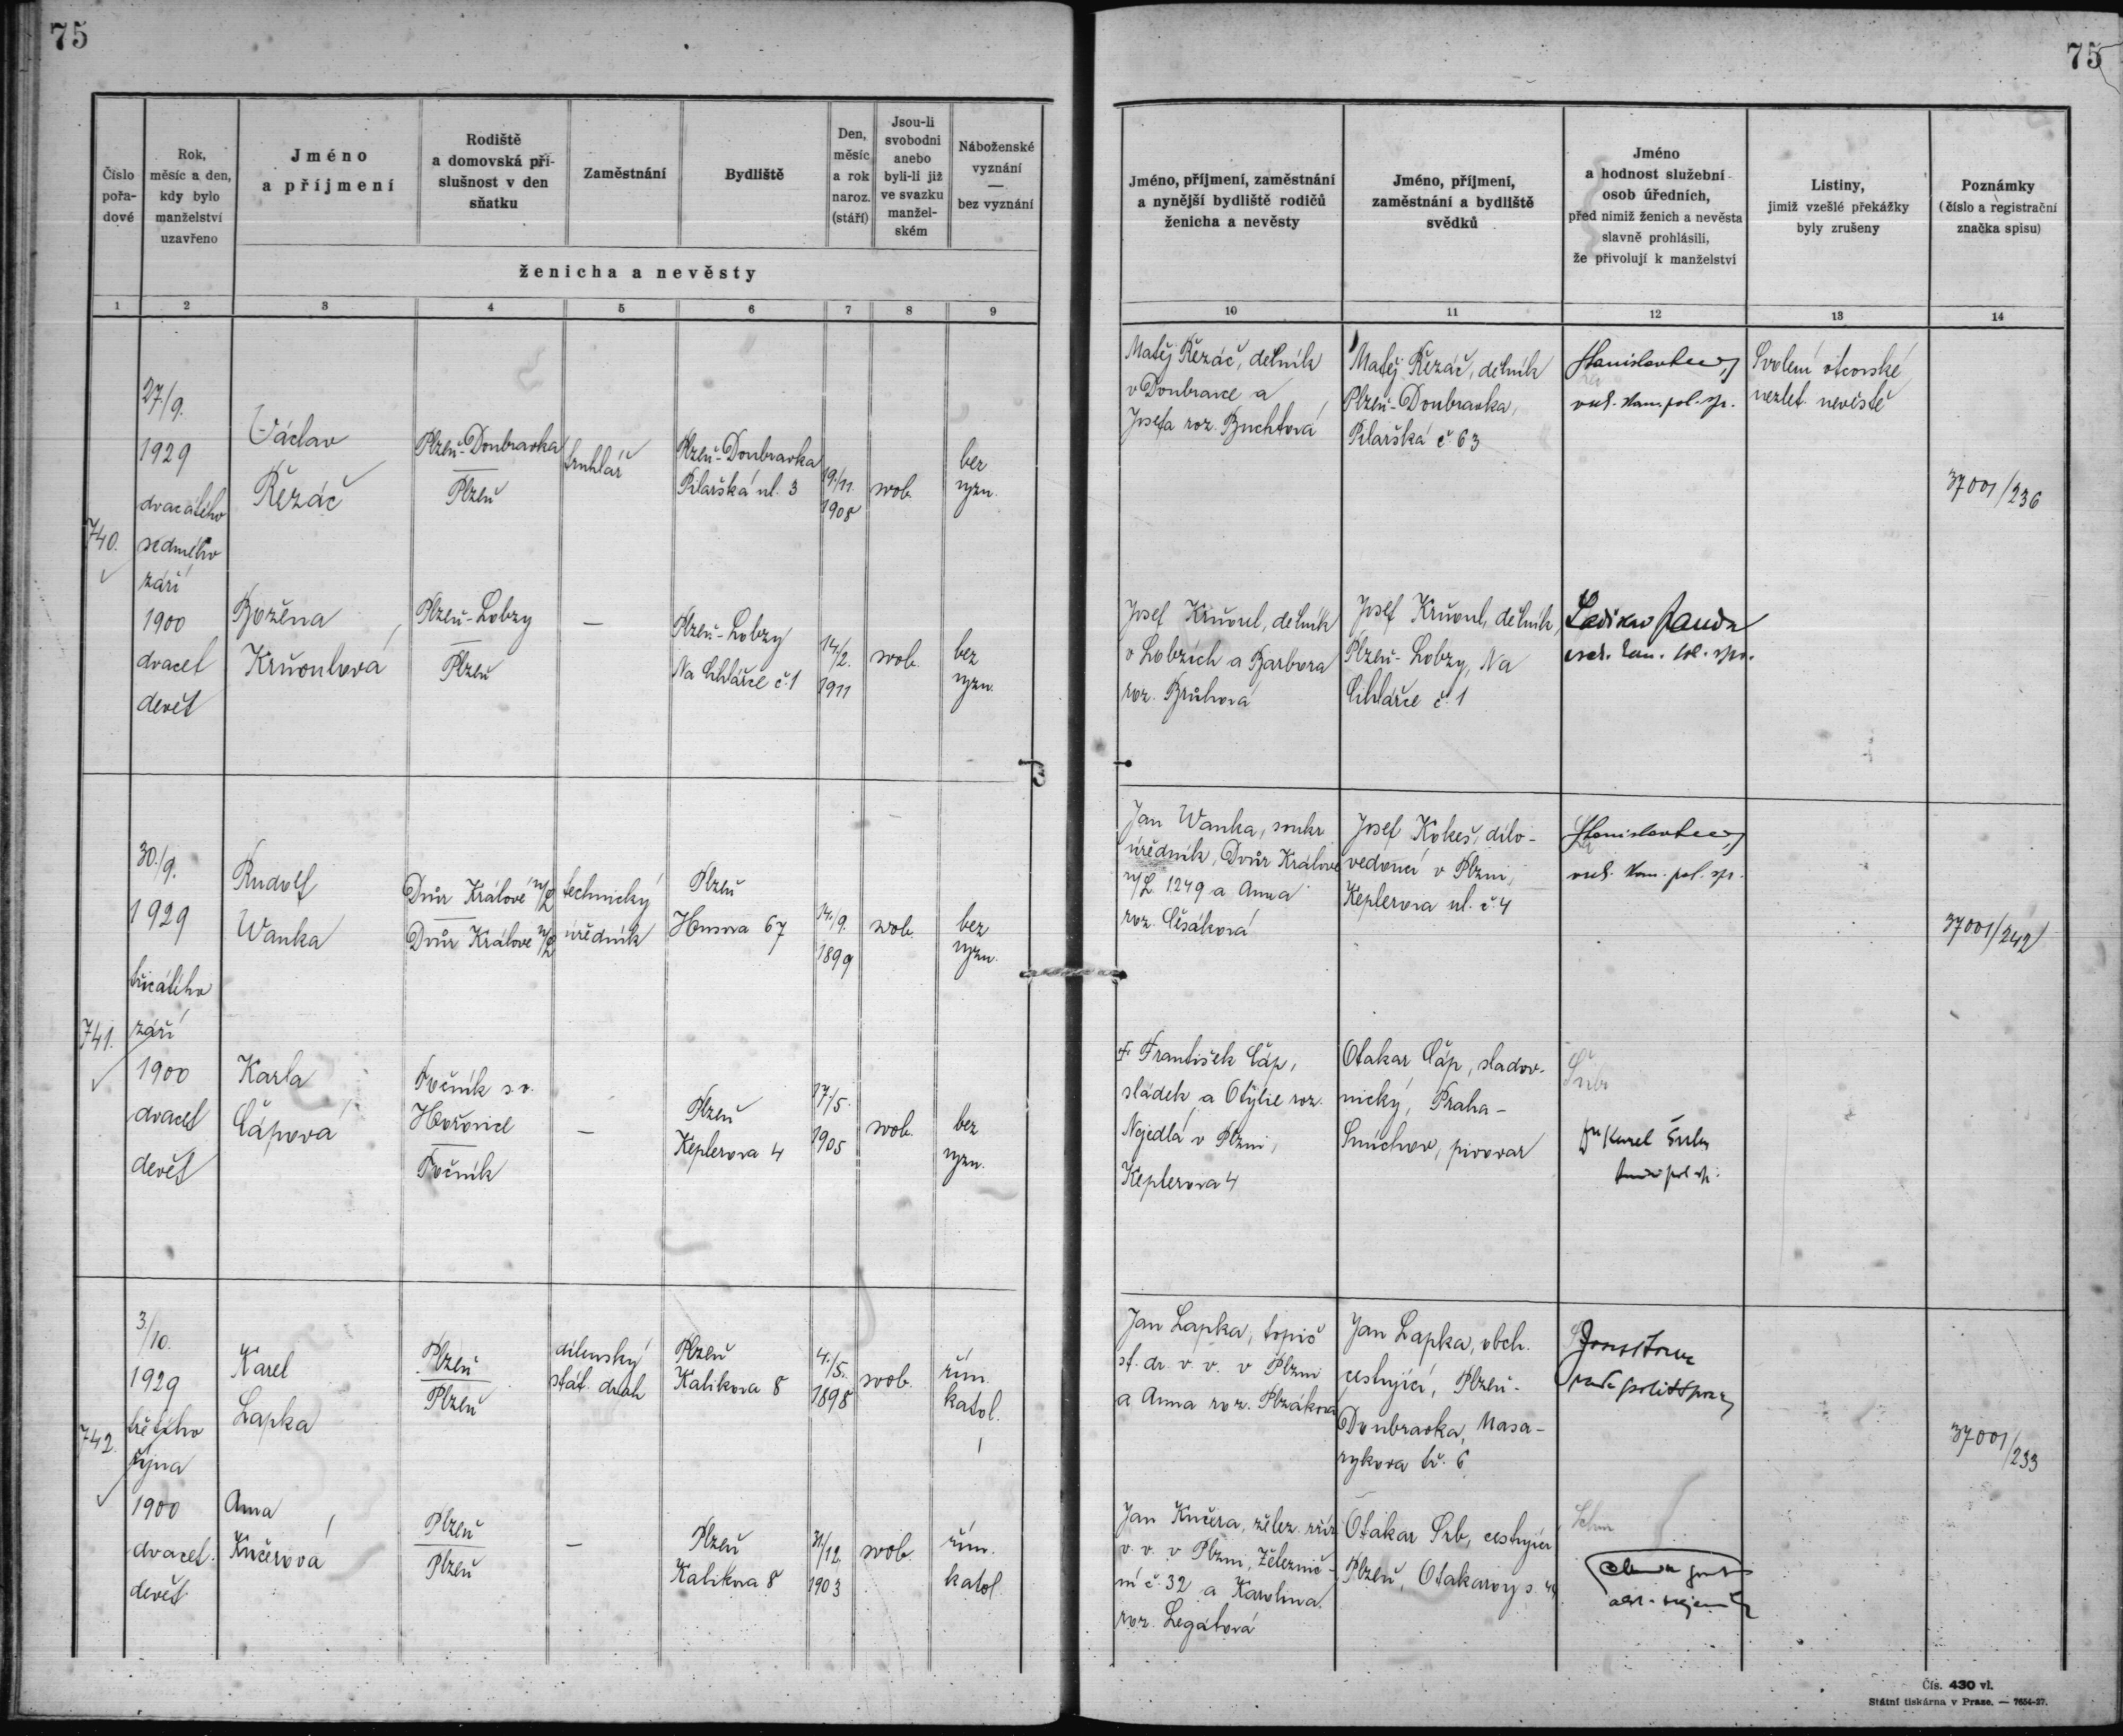 75
75
Číslo pořa-dové
Rok, měsíc a den, kdy bylo manželství uzavřeno
Jméno a příjmení
Rodiště a domovská pří-slušnost v den sňatku
Zaměstnání
Bydliště
Den, měsíc a rok naroz. (stáří)
Jsou-li svobodni anebo byli-li již ve svazku manžel-ském
Náboženské vyznání — bez vyznání
ženicha a nevěsty
Jméno, příjmení, zaměstnání a nynější bydliště rodičů ženicha a nevěsty
Jméno, příjmení, zaměstnání a bydliště svědků
Jméno a hodnost služební osob úředních, před nimiž ženich a nevěsta slavně prohlásili, že přivolují k manželství
Listiny, jimiž vzešlé překážky byly zrušeny
Poznámky (číslo a registrační značka spisu)
1 2 3 4 5 6 7 8 9
10 11 12 13 14
740.
27./9.
1929
dvacátého
sedmého
září
1900
dvacet
devět
Václav
Řezáč
Plzeň-Doubravka
Plzeň
truhlář
Plzeň-Doubravka
Pilařská ul. 3
19./11.
1908
svob.
bez
vyzn.
Matěj Řezáč, dělník
v Doubravce a
Josefa roz. Buchtová
Matěj Řezáč, dělník
Plzeň-Doubravka,
Pilařská č 63
vrch. kom. pol. spr.
Svolení otcovské
nezlet. nevěstě
37001/236
Božena
Krňoulová
Plzeň-Lobzy
Plzeň
—
Plzeň-Lobzy
Na Cihlářce č. 1
14./2.
1911
svob.
bez
vyzn.
Josef Krňoul, dělník
v Lobzích a Barbora
roz. Brůhová
Josef Krňoul, dělník,
Plzeň-Lobzy, Na
Cihlářce č. 1
Ladislav Janda
741.
30./9.
1929
třicátého
září
1900
dvacet
devět
Rudolf
Wanka
Dvůr Králové n/L
Dvůr Králové n/L
technický
úředník
Plzeň
Husova 67
14./9.
1899
svob.
bez
vyzn.
Jan Wanka, soukr.
úředník, Dvůr Králové
n/L 1249 a Anna
roz. Česáková
Josef Kokeš, dílo-
vedoucí v Plzni,
Keplerova ul. č. 4
vrch. kom. pol. spr.
37001/242
Karla
Čápová
Točník s. o.
Hořovice
Točník
—
Plzeň
Keplerova 4
17./5.
1905
svob.
bez
vyzn.
† František Čáp,
sládek a Otylie roz.
Nejedlá v Plzni,
Keplerova 4
Otakar Čáp, sladov-
nický, Praha-
Smíchov, pivovar
742.
3./10.
1929
třetího
října
1900
dvacet
devět
Karel
Lapka
Plzeň
Plzeň
dílenský
stát. drah
Plzeň
Kalikova 8
4./5.
1898
svob.
řím.
katol.
Jan Lapka, topič
st. dr. v. v. v Plzni
a Anna roz. Plzáková
Jan Lapka, obch.
cestující, Plzeň-
Doubravka, Masa-
rykova tř. 6
37001/233
Anna
Kučerová
Plzeň
Plzeň
—
Plzeň
Kalikova 8
31./12.
1903
svob.
řím.
katol.
Jan Kučera, želez. zříz.
v. v. v Plzni, Železnič-
ní č. 32 a Karolina
roz. Legátová
Otakar Srb, cestující
Plzeň, Otakarovy s.
Čís. 430 vl.
Státní tiskárna v Praze. — 7654-27.